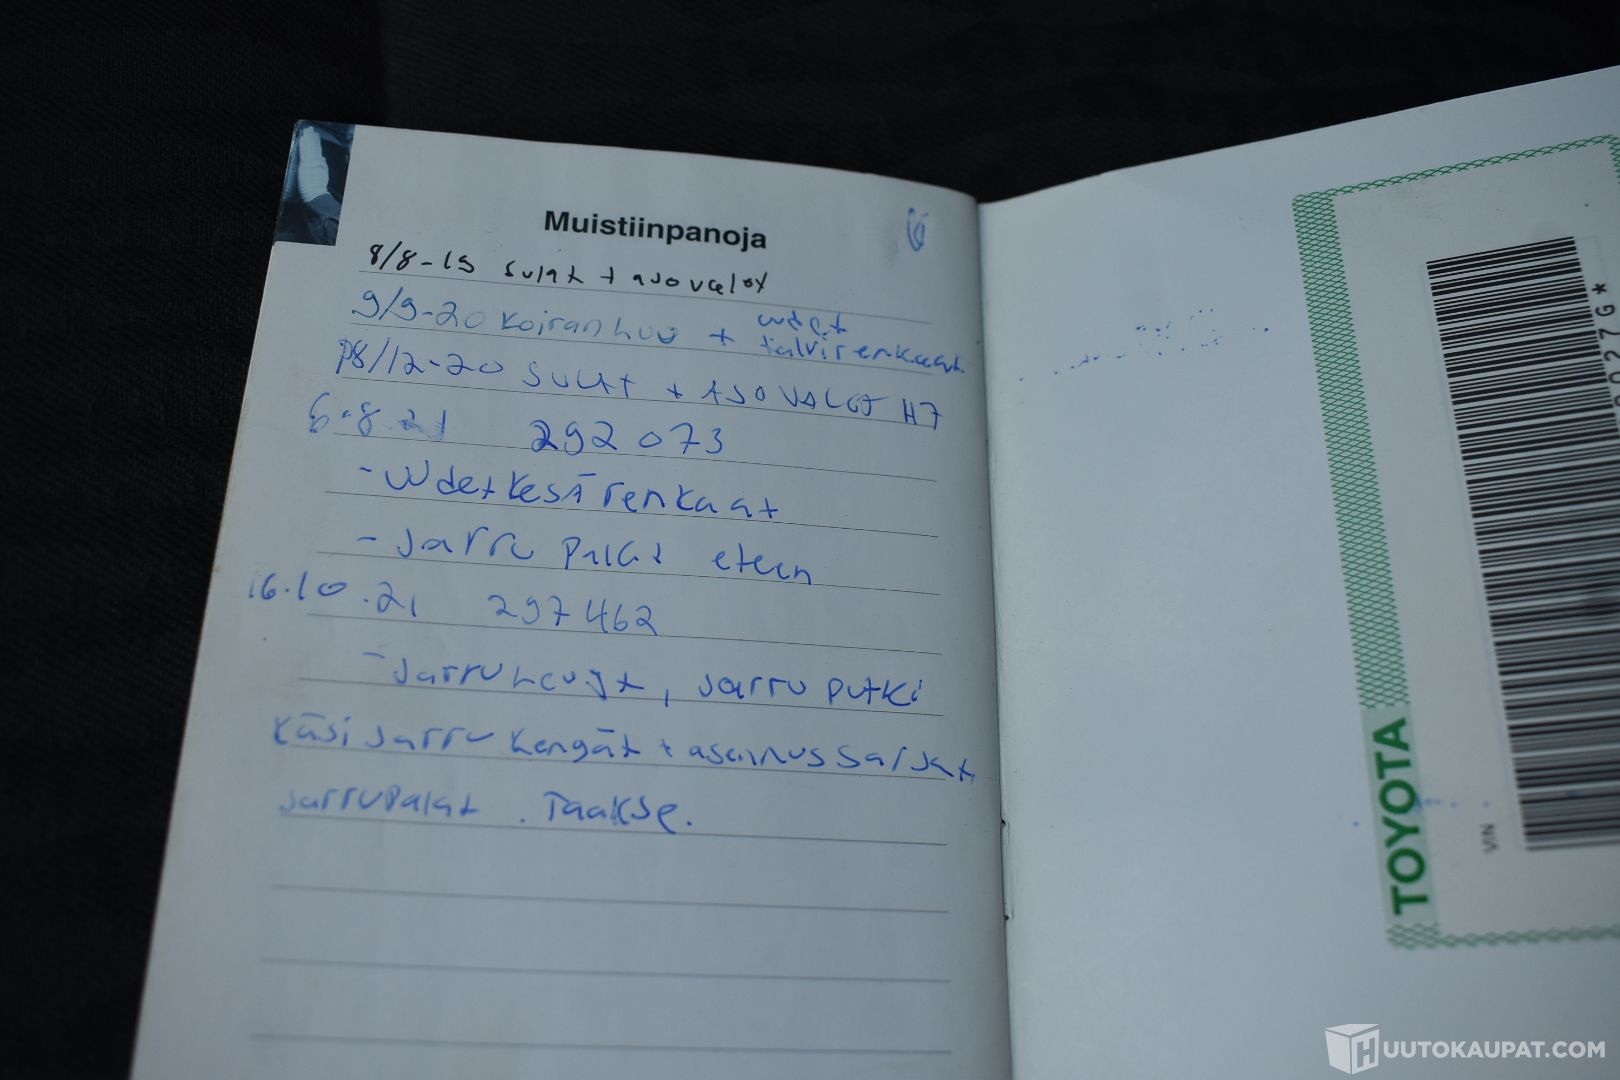 Muistiinpanoja
8/8-19 sulat + ajovalot
9/9-20 koiranluu + uudet
talvirenkaat
8/12-20 SULAT + AJOVALOT H7
6.8.21 292 073
- uudet kesärenkaat
- Jarru palat eteen
16.10.21 297 462
- Jarru levyt, jarru putki
Käsi jarru kengät + asennus sarjat,
jarrupalat. Taakse.
0027G*
VIN
TOYOTA
HUUTOKAUPAT.COM